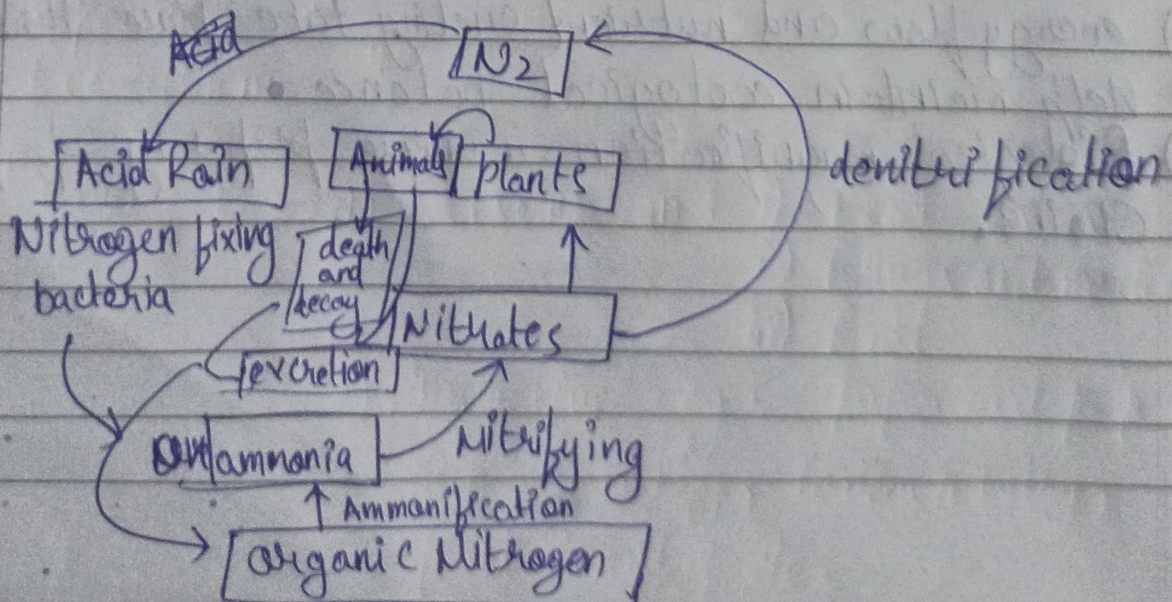 Acid
N2
Acid Rain
Animals
plants
denitrification
Nitrogen fixing
bacteria
death
and
decay
Nitrates
excretion
ammonia
Nitrifying
Ammanification
organic Nitrogen